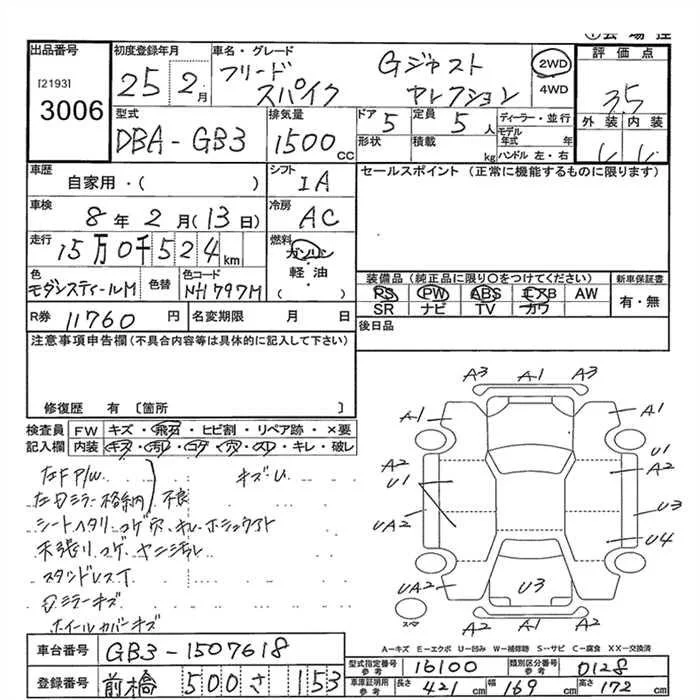 出品番号 [2193] 3006
初度登録年月 25 2月
車名・グレード フリード スパイク Gジャスト セレクション
2WD
4WD
評価点 3.5
外装 内装
型式 DBA-GB3
排気量 1500 cc
ドア 5
定員 5人
形状
積載 kg
ディーラー・並行
モデル年式 年
ハンドル 左・右
車歴 自家用・( )
シフト IA
セールスポイント (正常に機能するものに限ります)
車検 8年2月(13日)
冷房 AC
走行 15万0千524km
燃料 ガソリン
軽油
( )
色 モダンスティールM
色替
色コード NH797M
装備品 (純正品に限り○をつけてください)
PS PW ABS エアB AW
SR ナビ TV カワ
新車保証書
有・無
R券 11760円
名変期限 月 日
後日品
注意事項申告欄(不具合内容等は具体的に記入して下さい)
修復歴 有 〔箇所 〕
検査員記入欄
FW キズ・飛石・ヒビ割・リペア跡・×要
内装 キズ・汚れ・コゲ・穴・スレ・キレ・破レ
左F P/W
左ドミラー格納 不良
キズU
シートヘタリ コゲ穴
天張り コゲ ヤニ汚レ
スタッドレスT
ドミラーキズ
ホイールカバーキズ
A3 A1 A3
A1 A1
A2 U1 U1 A2
UA2 U3
U4
UA2 U3 A2
スペア
A2 A1 A2
A=キズ E=エクボ U=凹み W=補修跡 S=サビ C=腐食 XX=交換済
車台番号 GB3-1507618
登録番号 前橋 500 さ 153
型式指定番号 参考 16100
類別区分番号 参考 0128
車庫証明用 参考 長さ 421cm 幅 169cm 高さ 172cm